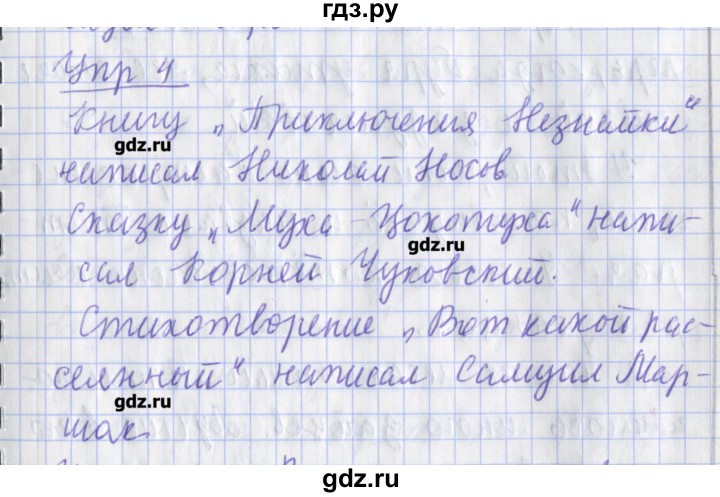 гдз.ру
Упр 4
Книгу „Приключения Незнайки“
gdz.ru
написал Николай Носов
Сказку „Муха-Цокотуха“ напи-
gdz.ru
сал Корней Чуковский.
Стихотворение „Вот какой рас-
сеянный“ написал Самуил Мар-
gdz.ru
шак.
gdz.ru